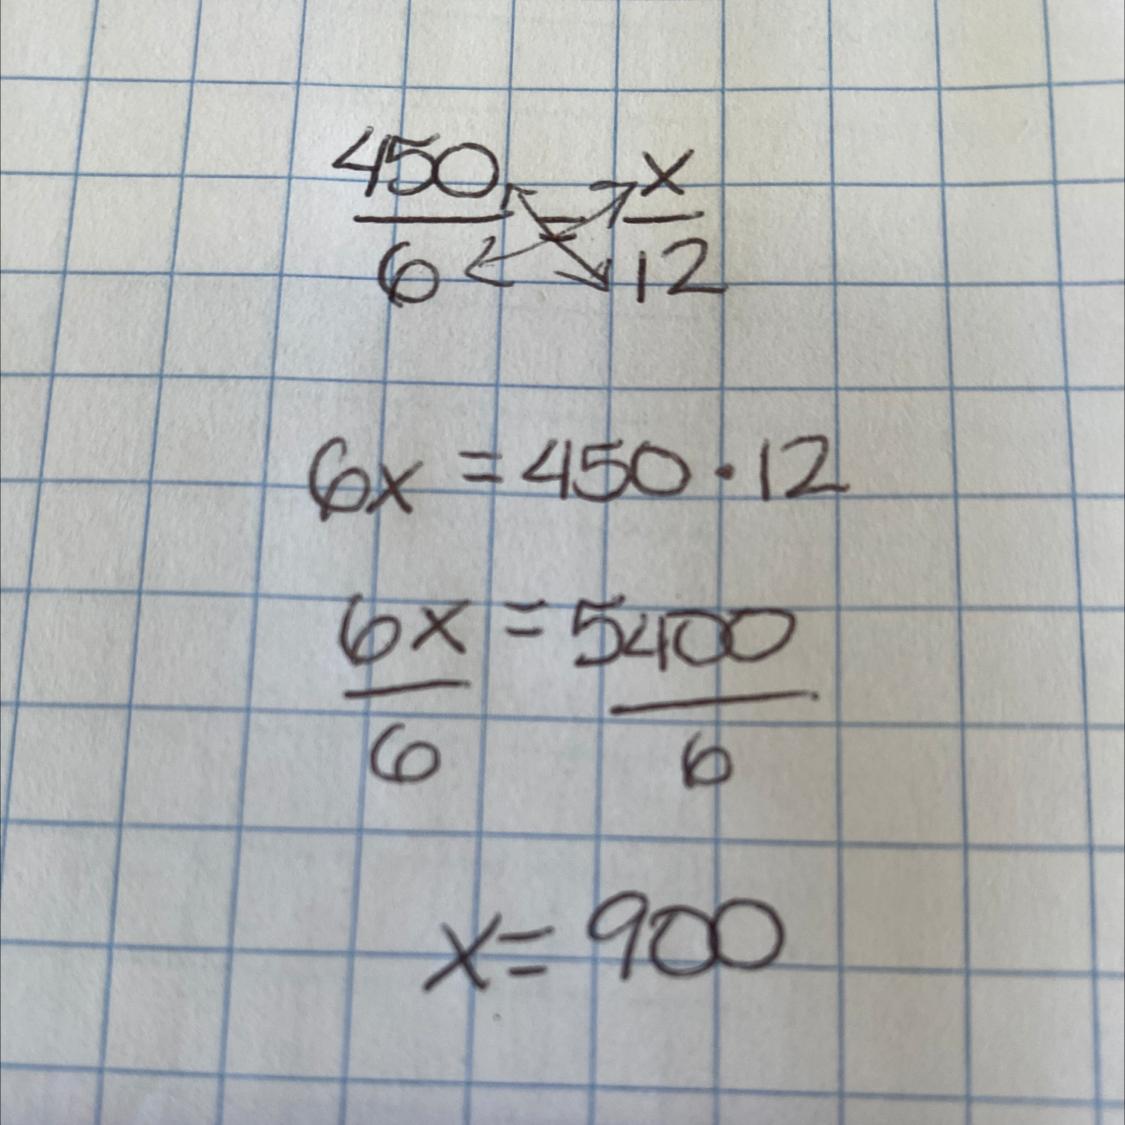 450/6 = x/12
6x = 450 · 12
6x/6 = 5400/6
x = 900